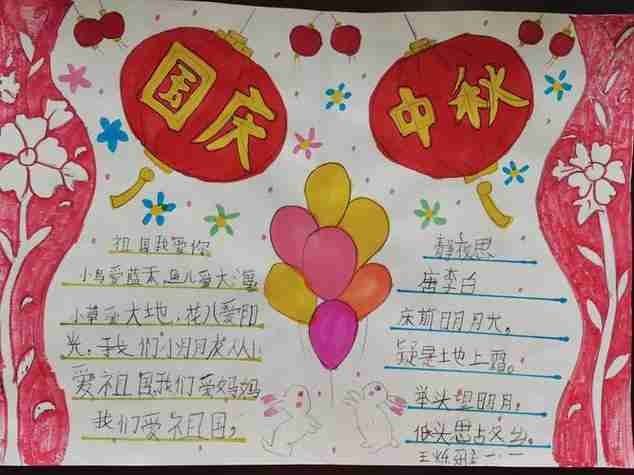 国庆
中秋
祖国我爱你
小鸟爱蓝天,鱼儿爱大海
小草爱大地,花儿爱阳
光,我们小朋友从小
爱祖国我们爱妈妈
我们爱祖国,
静夜思
唐李白
床前明月光。
疑是地上霜。
举头望明月,
低头思故乡。